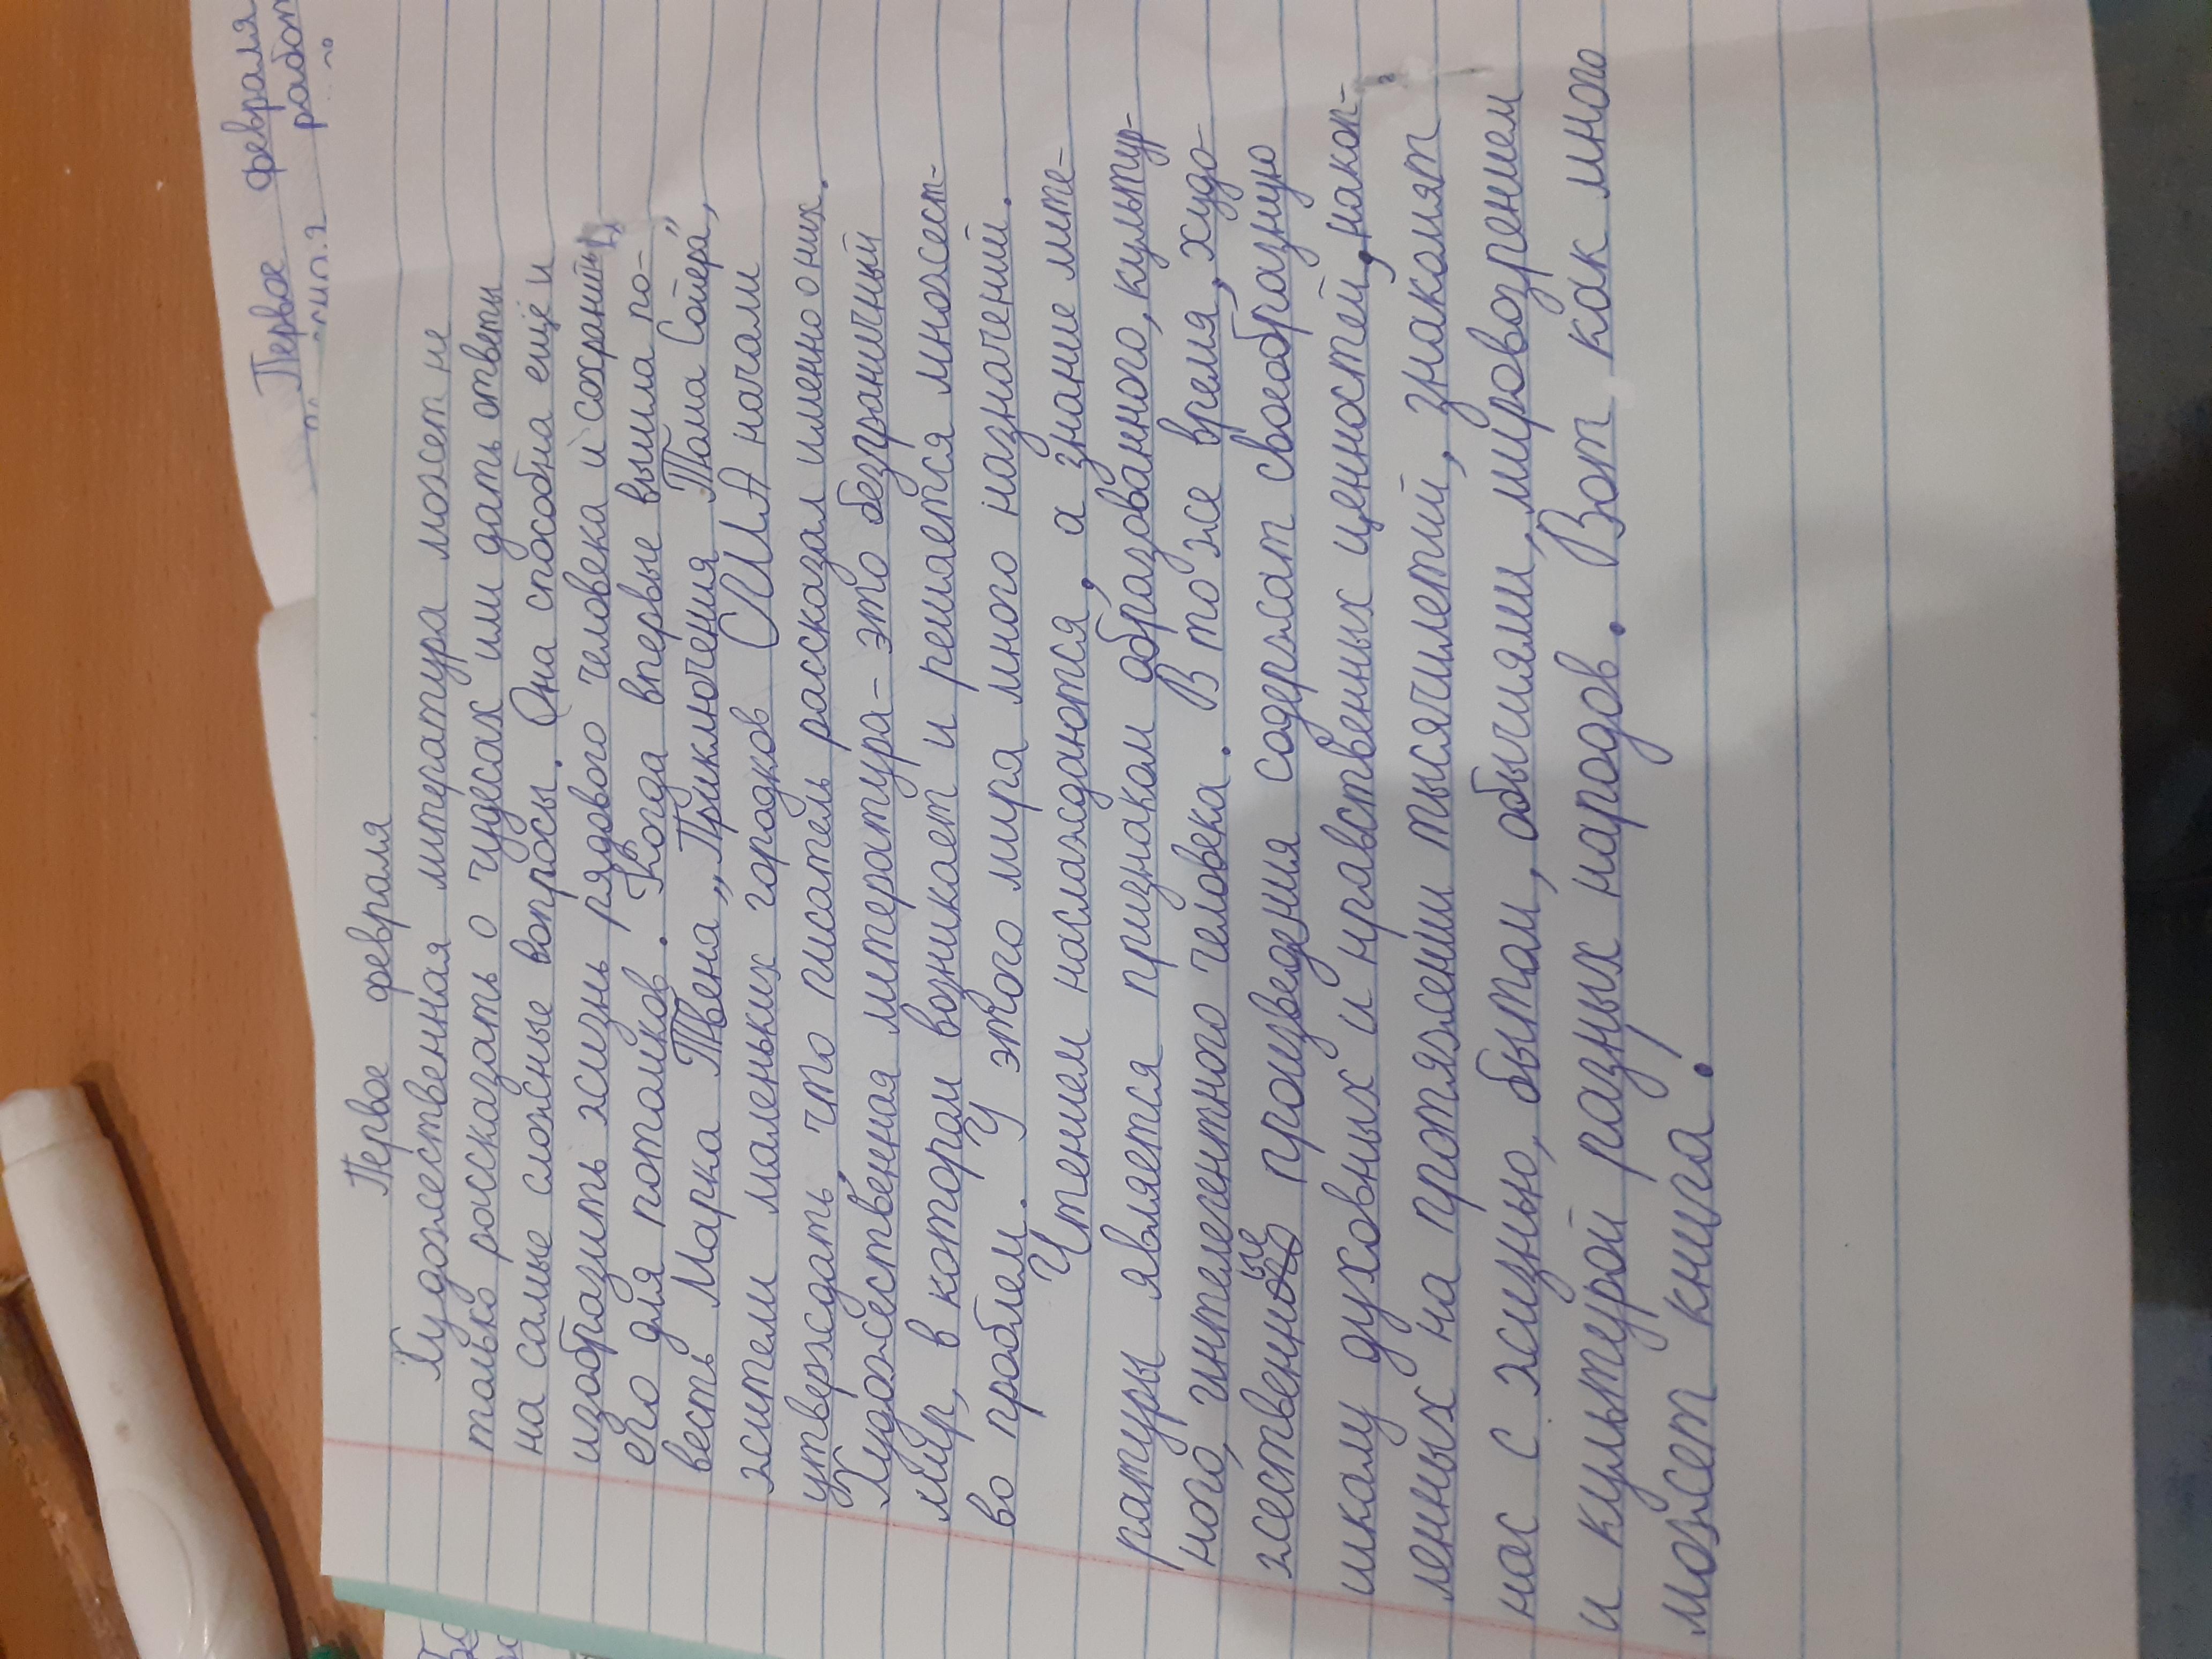 Первое февраля
Первое февраля
Художественная литература может не
только россказать о чудесах или дать ответы
на самые сложные вопросы. Она способна ещё и
изобразить жизнь рядового человека и сохранить
его для потомков. Когда впервые вышла по-
весть Марка Твена „Приключения Тома Сойера”,
жители маленьких городков США начали
утверждать, что писатель рассказал именно о них.
Художественная литература - это безграничный
мир, в котором возникает и решается множест-
во проблем. У этого мира много назначений.
Чтением наслаждаются, а знание лите-
ратуры является признаком образованного, культур-
ного, интелегентного человека. В то же время, худо-
жественные произведения содержат своеобразную
шкалу духовных и нравственных ценностей, накоп-
ленных на протяжении тысячилетий, знакомят
нас с жизнью, бытом, обычиями, мировозрением
и культурой разных народов. Вот как много
может книга!